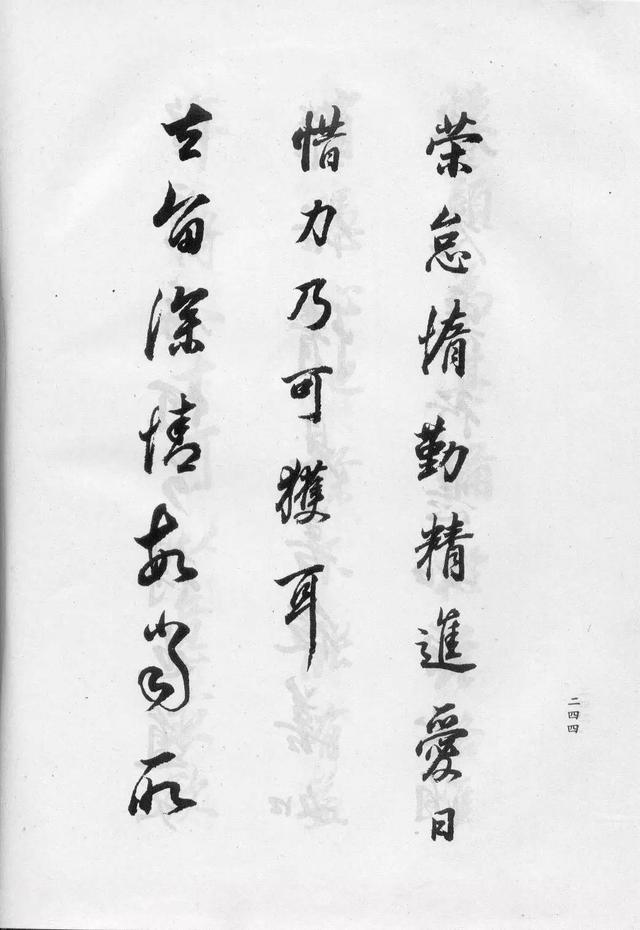 荣怠惰勤精進愛日
惜力乃可獲耳
留深情所
二四四